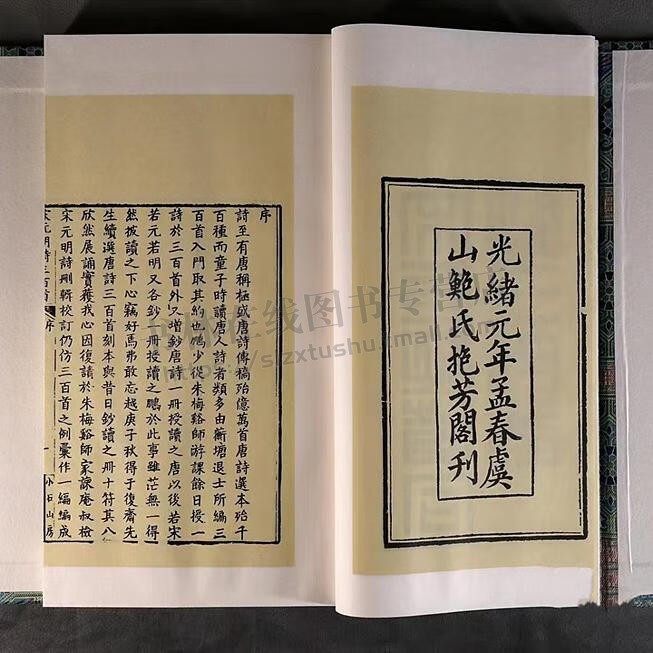 光緒元年孟春虞
山鮑氏抱芳閣刊
序
詩至有唐稱極盛唐詩傳稿殆億萬首唐詩選本殆千
百種而童子時讀唐人詩者類多由蘅塘退士所編三
百首入門取其約也鵬少從朱梅谿師游課餘日授一
詩於三百首外又增鈔唐詩一冊授讀之唐以後若宋
若元若明又各鈔一冊授讀之鵬於此事雖茫無一得
然披讀之下心竊好焉弗敢忘越庚子秋得于復齋先
生續選唐詩三百首刻本與昔日鈔讀之冊十符其八
欣然展誦實獲我心因復請於朱梅谿師家諒庵叔檢
宋元明詩刪輯校訂仍仿三百首之例彙作一編編成
宋元明詩三百首 序 一 小石山房
在线图书专营店
tushu.tmall.com